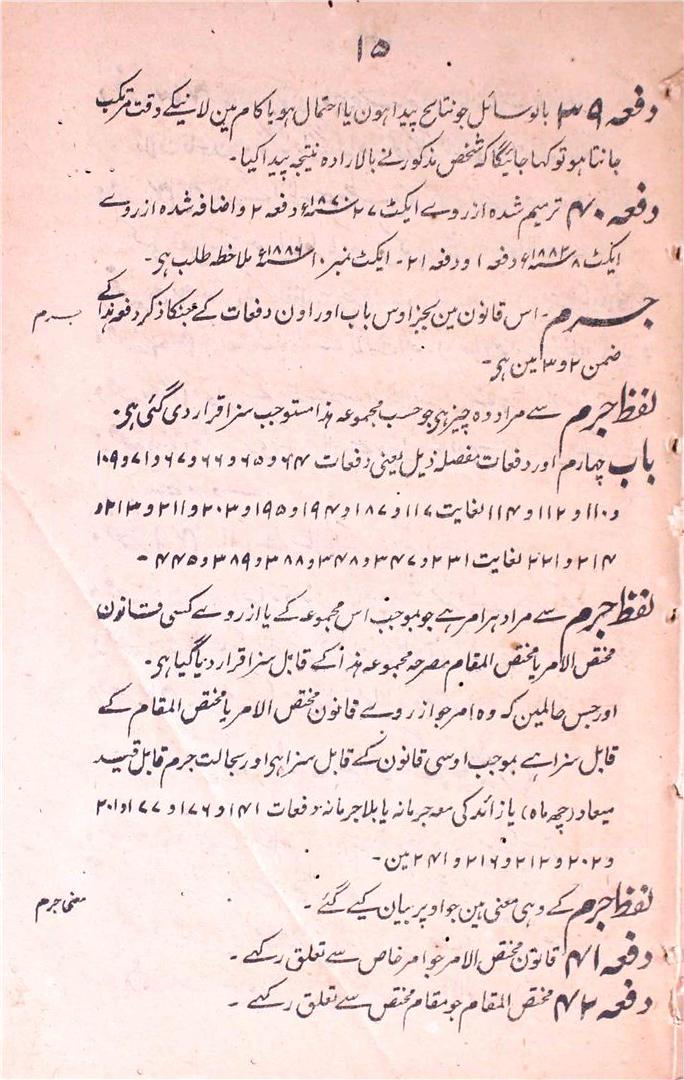 ۱۵
دفعہ ۳۹ بالوسائل جو نتائج پیدا ہون یا احتمال ہو یا کام مین لانیکے وقت مرتکب
جانتا ہو تو کہا جائیگا کہ شخص مذکور نے بالارادہ نتیجہ پیدا کیا۔
دفعہ ۴۰ ترمیم شدہ از روے ایکٹ ۲۷ ۱۸۷۰ء دفعہ ۲ و اضافہ شدہ از روے
ایکٹ ۸ ۱۸۸۲ء دفعہ ۱ و دفعہ ۲۱۔ ایکٹ نمبر ۱۰ ۱۸۸۶ء ملاحظہ طلب ہی۔
جرم۔ اس قانون مین بجز اوس باب اور اون دفعات کے جنکا ذکر دفعہ ہذا کے
جرم
ضمن ۲ و ۳ مین ہی۔
لفظ جرم سے مراد وہ چیز ہی جو حسب مجموعہ ہذا مستوجب سزا قرار دی گئی ہی۔
باب چہارم اور دفعات مفصلہ ذیل یعنی دفعات ۶۴ و ۶۵ و ۶۶ و ۶۷ و ۷۱ و ۱۰۹
و ۱۱۰ و ۱۱۲ و ۱۱۴ لغایت ۱۱۷ و ۱۸۷ و ۱۹۴ و ۱۹۵ و ۲۰۳ و ۲۱۱ و ۲۱۳ و
۲۱۴ و ۲۲۱ لغایت ۲۳۱ و ۳۴۷ و ۳۴۸ و ۳۸۸ و ۳۸۹ و ۴۴۵ ۔
لفظ جرم سے مراد ہر امر ہے جو بموجب اس مجموعہ کے یا از روے کسی قانون
مختص الامر یا مختص المقام مصرحہ مجموعہ ہذا کے قابل سزا قرار دیا گیا ہی۔
اور جس حالمین کہ وہ امر جو از روے قانون مختص الامر یا مختص المقام کے
قابل سزا ہے بموجب اوسی قانون کے قابل سزا ہی اور بحالت جرم قابل قید
میعاد (چھ ماہ) یا زائد کی معہ جرمانہ یا بلا جرمانہ دفعات ۱۴۱ و ۱۷۶ و ۱۷۷ و ۲۰۱
و ۲۰۲ و ۲۱۲ و ۲۱۶ و ۲۴۱ مین۔
لفظ جرم کے وہی معنی ہین جو اوپر بیان کیے گئے ۔
معنی جرم
دفعہ ۴۱ قانون مختص الامر جو امر خاص سے تعلق رکہے ۔
دفعہ ۴۲ مختص المقام جو مقام مختص سے تعلق رکہے ۔